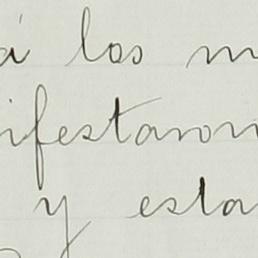 á los m
ifestaron
y esta